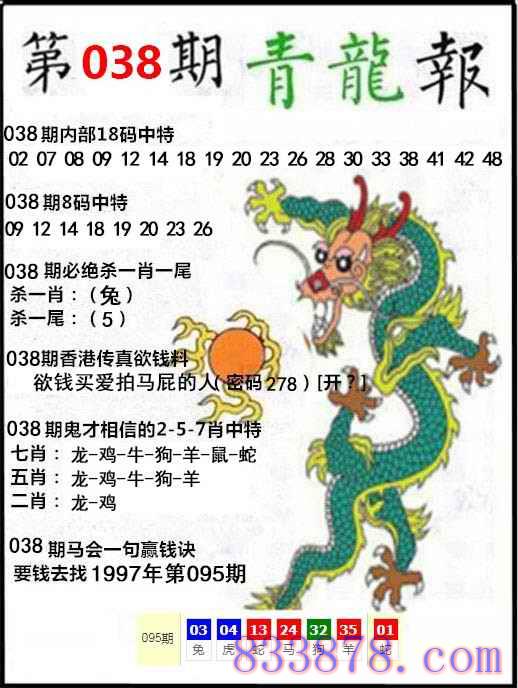 第038期青龍報
038期内部18码中特
02 07 08 09 12 14 18 19 20 23 26 28 30 33 38 41 42 48
038期8码中特
09 12 14 18 19 20 23 26
038期必绝杀一肖一尾
杀一肖：（兔）
杀一尾：（5）
038期香港传真欲钱料
欲钱买爱拍马屁的人（密码278）[开？]
038期鬼才相信的2-5-7肖中特
七肖：龙-鸡-牛-狗-羊-鼠-蛇
五肖：龙-鸡-牛-狗-羊
二肖：龙-鸡
038期马会一句赢钱诀
要钱去找1997年第095期
095期 03 04 13 24 32 35 01
兔 虎 蛇 马 狗 羊 蛇
833878.com